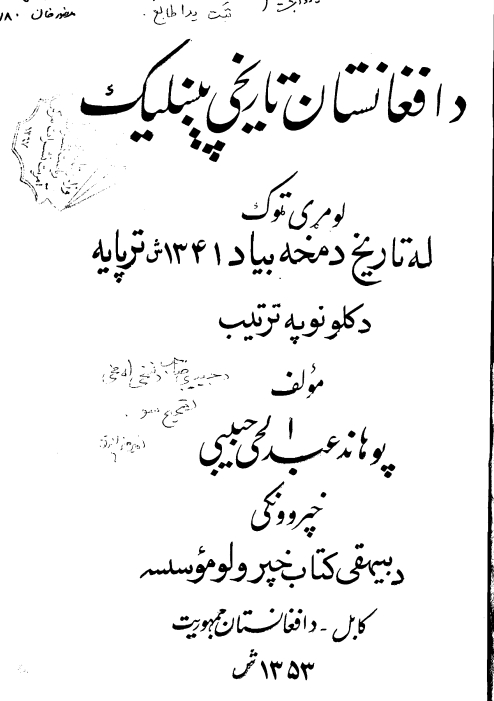 ثبت یدا طابع .
د افغانستان تاریخي پیښلیک
لومړی ټوک
له تاریخ دمخه بیا د ۱۳۴۱ ش ترپایه
د کلونو په ترتیب
مؤلف
پوهاند عبدالحی حبیبی
خپروونکی
د بیهقی کتاب خپرولو مؤسسه
کابل - د افغانستان جمهوریت
۱۳۵۳ ش